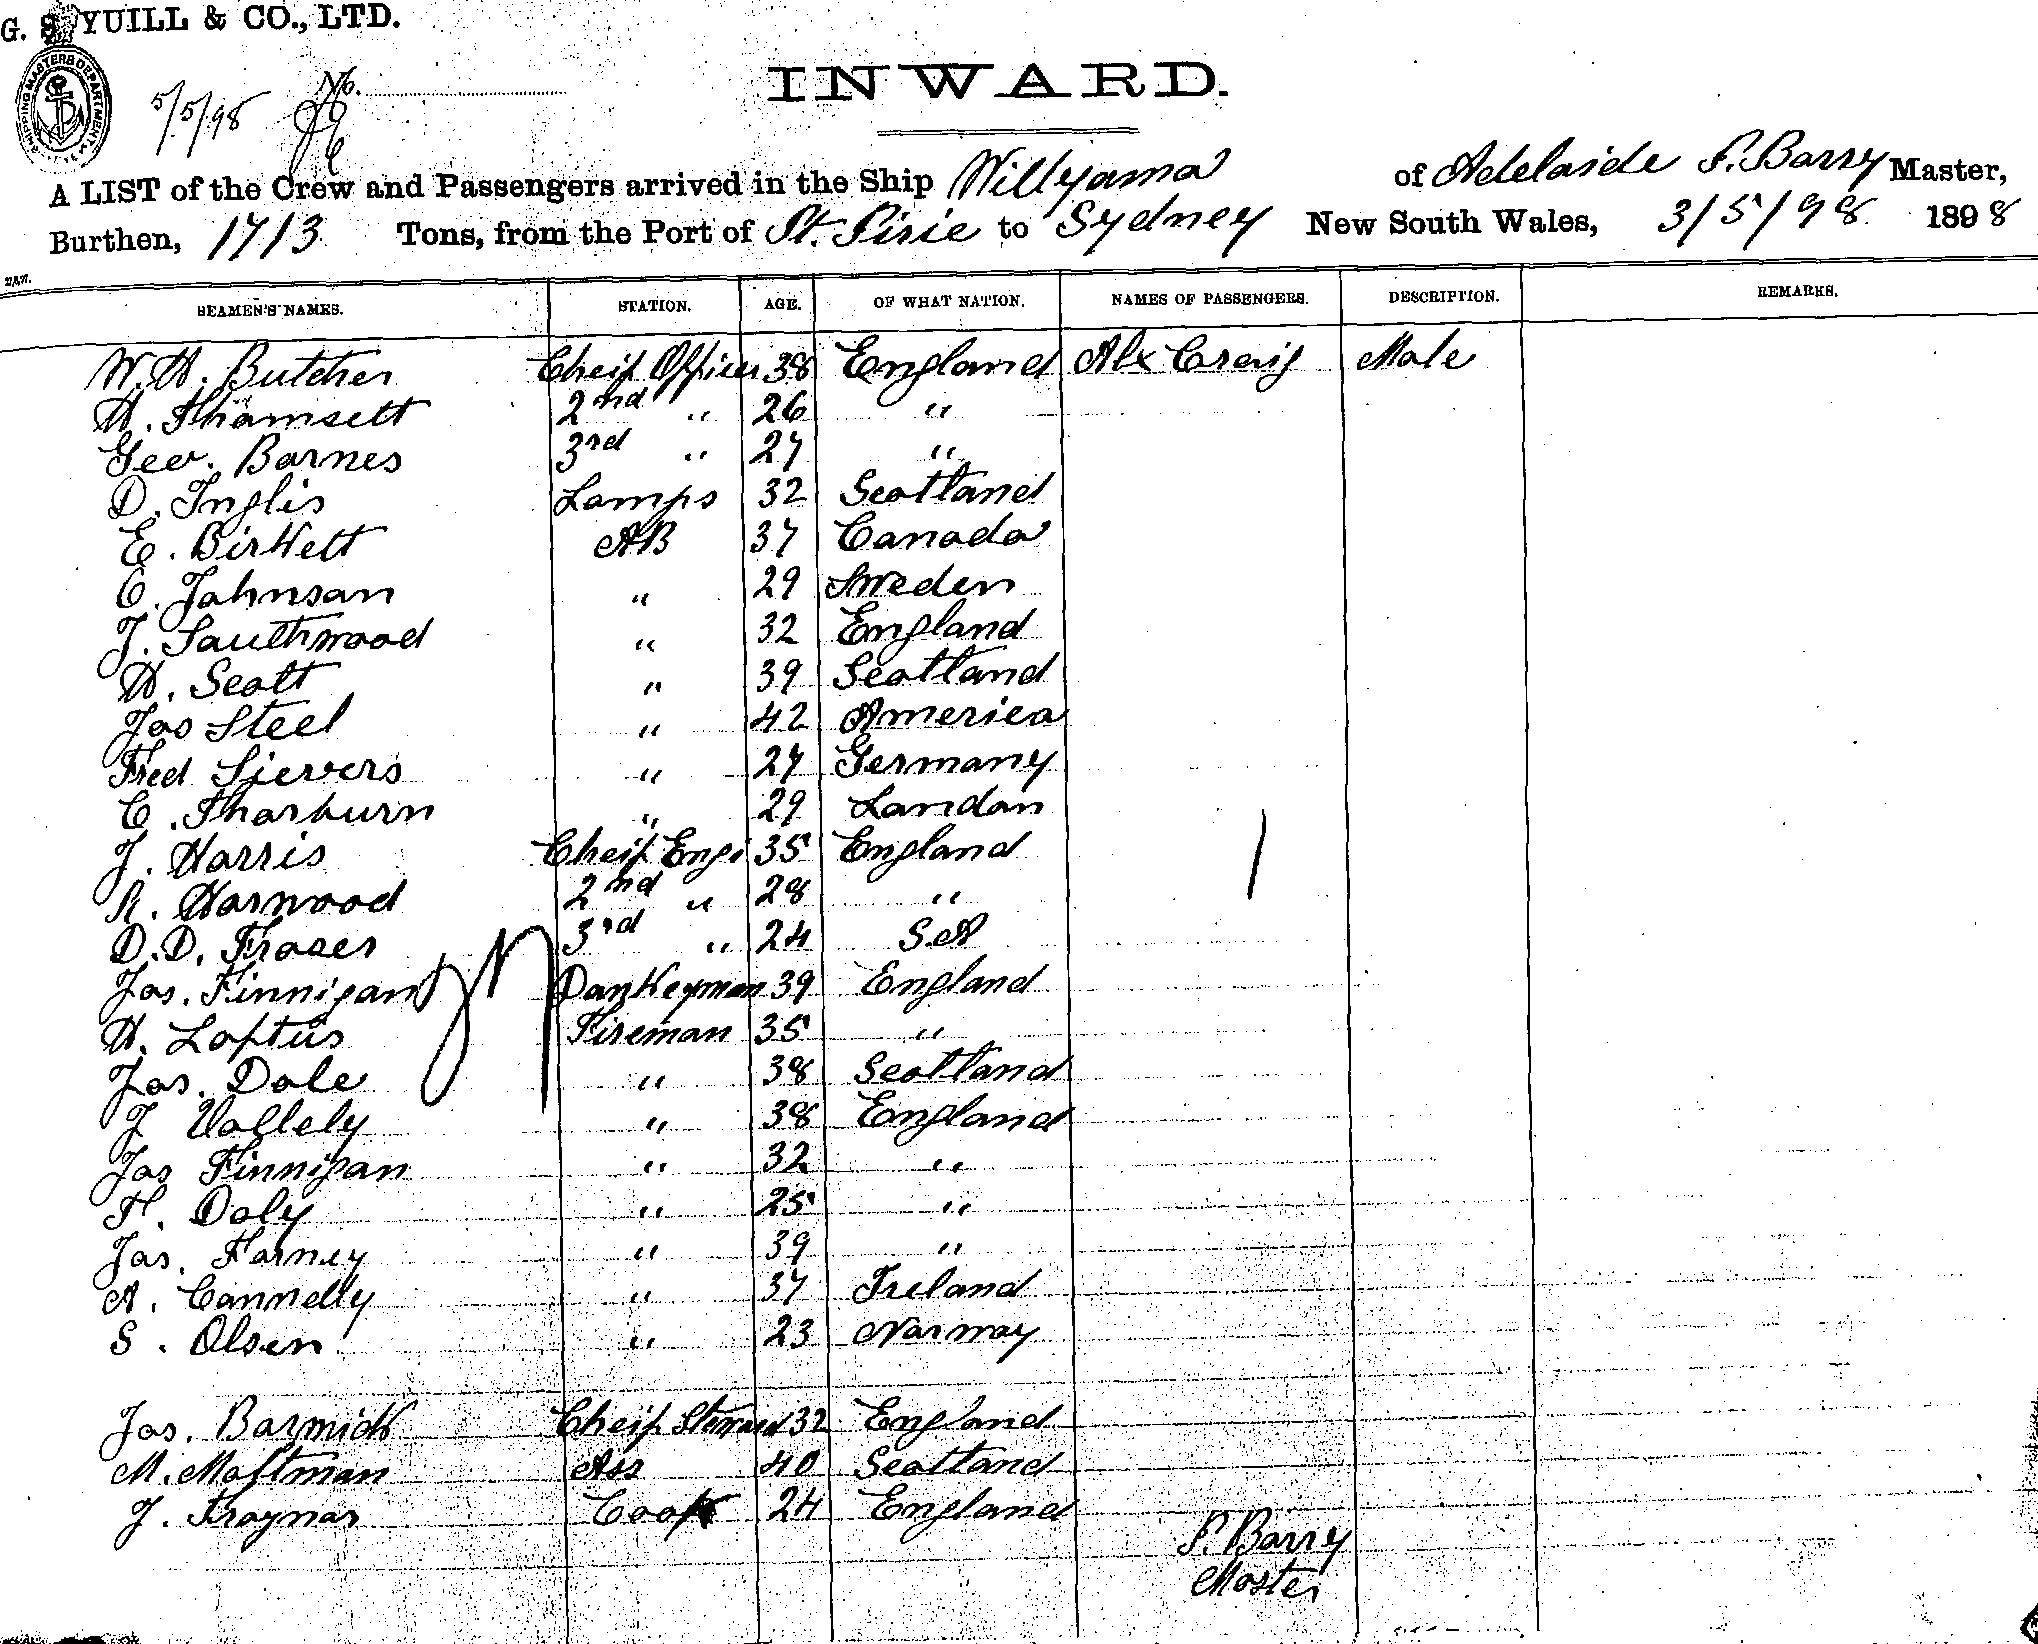 G. S. YUILL & CO., LTD.
SHIPPING MASTERS DEPARTMENT
5/5/98 No.
INWARD.
A LIST of the Crew and Passengers arrived in the Ship Willyama of Adelaide P. Barry Master,
Burthen, 1713 Tons, from the Port of Pt. Pirie to Sydney New South Wales, 3/5/98 1898
SEAMEN'S NAMES. STATION. AGE. OF WHAT NATION. NAMES OF PASSENGERS. DESCRIPTION. REMARKS.
W. H. Butcher Cheif Officer 38 England Alx Craig Male
H. Thamsett 2nd " 26 "
Geo. Barnes 3rd " 27 "
D. Inglis Lamps 32 Scotland
E. Birkett AB 37 Canada
C. Johnson " 29 Sweden
J. Southwood " 32 England
H. Scott " 39 Scotland
Jas Steel " 42 America
Fred Sievers " 27 Germany
C. Thorburn " 29 London
J. Harris Cheif Engi 35 England
R. Harwood 2nd " 28 "
D. D. Fraser 3rd " 24 S.A
Jas. Finnigan Donkeyman 39 England
H. Loftus Fireman 35 "
Jas. Dale " 38 Scotland
J Vallely " 38 England
Jas Finnigan " 32 "
F. Daly " 25 "
Jas. Farney " 39 "
A. Connelly " 37 Ireland
S. Olsen " 23 Norway
Jas. Barwick Cheif Steward 32 England
M. Moftman Ass 40 Scotland
J. Traynor Cook 24 England
P. Barry
Master